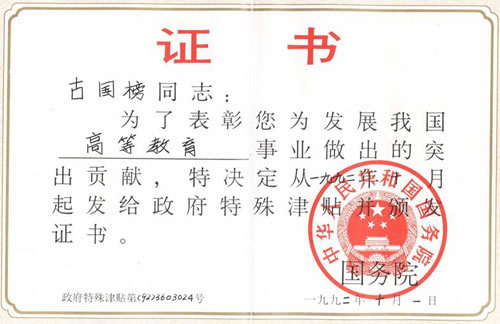 证书
古国榜同志：
为了表彰您为发展我国
高等教育事业做出的突
出贡献，特决定从一九九二年十月
起发给政府特殊津贴并颁发
证书。
中华人民共和国国务院
国务院
政府特殊津贴第(92)3603024号
一九九二年十月一日